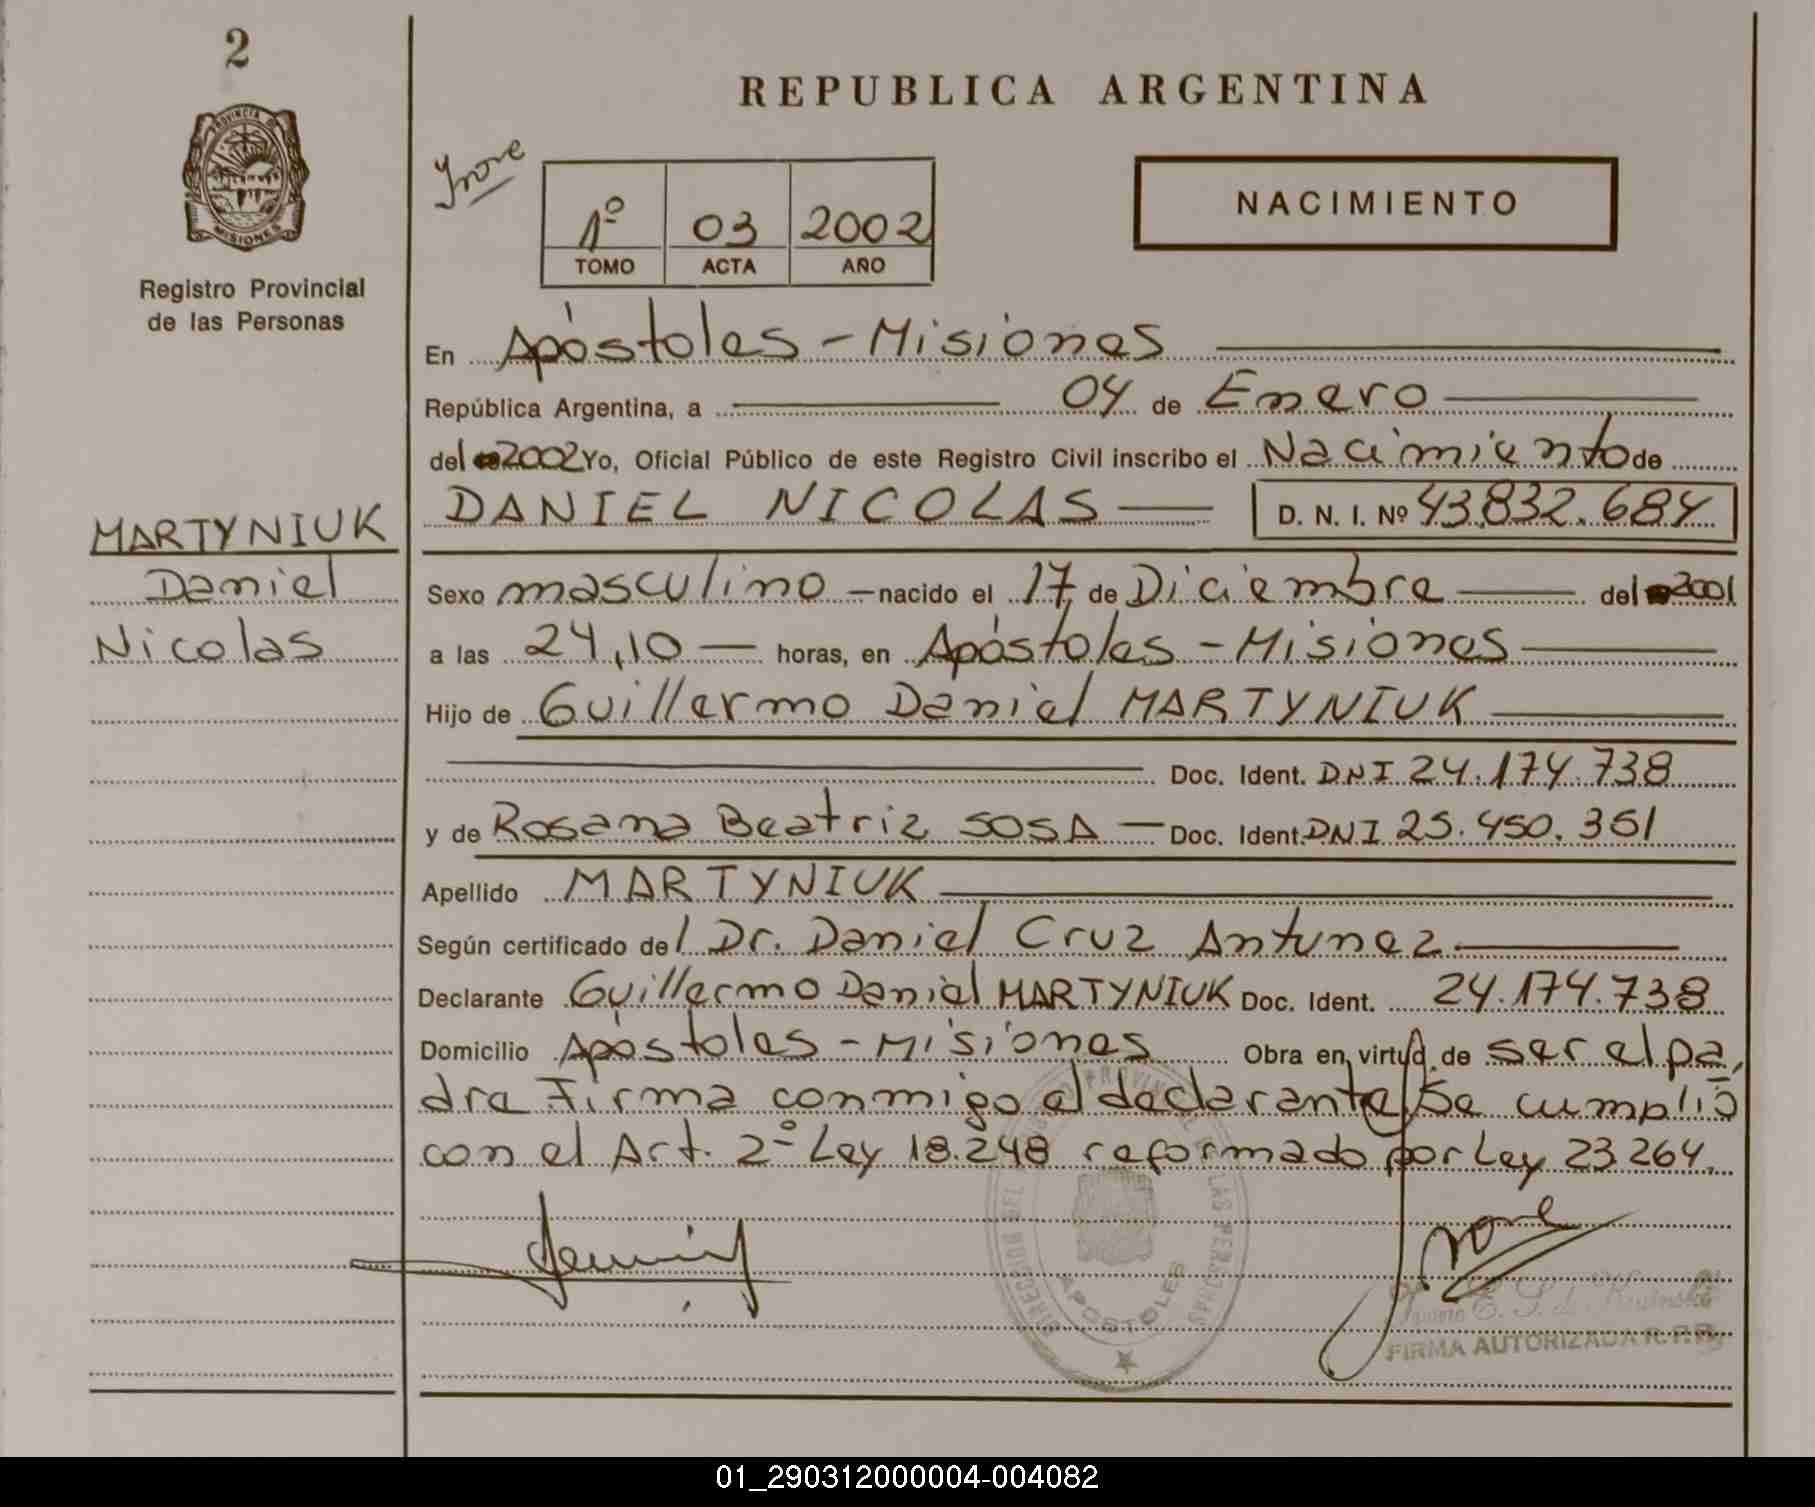 2
PROVINCIA DE
MISIONES
Registro Provincial
de las Personas
REPUBLICA ARGENTINA
1º 03 2002
TOMO ACTA AÑO
NACIMIENTO
En Apóstoles - Misiones
República Argentina, a 04 de Enero
del 2002 Yo, Oficial Público de este Registro Civil inscribo el Nacimiento de
DANIEL NICOLAS D. N. I. Nº 43.832.684
MARTYNIUK
Daniel
Nicolas
Sexo masculino - nacido el 17 de Diciembre del 2001
a las 24,10 horas, en Apóstoles - Misiones
Hijo de Guillermo Daniel MARTYNIUK
Doc. Ident. DNI 24.174.738
y de Rosana Beatriz SOSA - Doc. Ident. DNI 25.450.361
Apellido MARTYNIUK
Según certificado del Dr. Daniel Cruz Antunez
Declarante Guillermo Daniel MARTYNIUK Doc. Ident. 24.174.738
Domicilio Apóstoles - Misiones Obra en virtud de ser el pa
dre Firma conmigo el declarante/Se cumplió
con el Art. 2º Ley 18.248 reformado por Ley 23.264.
APOSTOLES
FIRMA AUTORIZADA R. P. P.
01_290312000004-004082